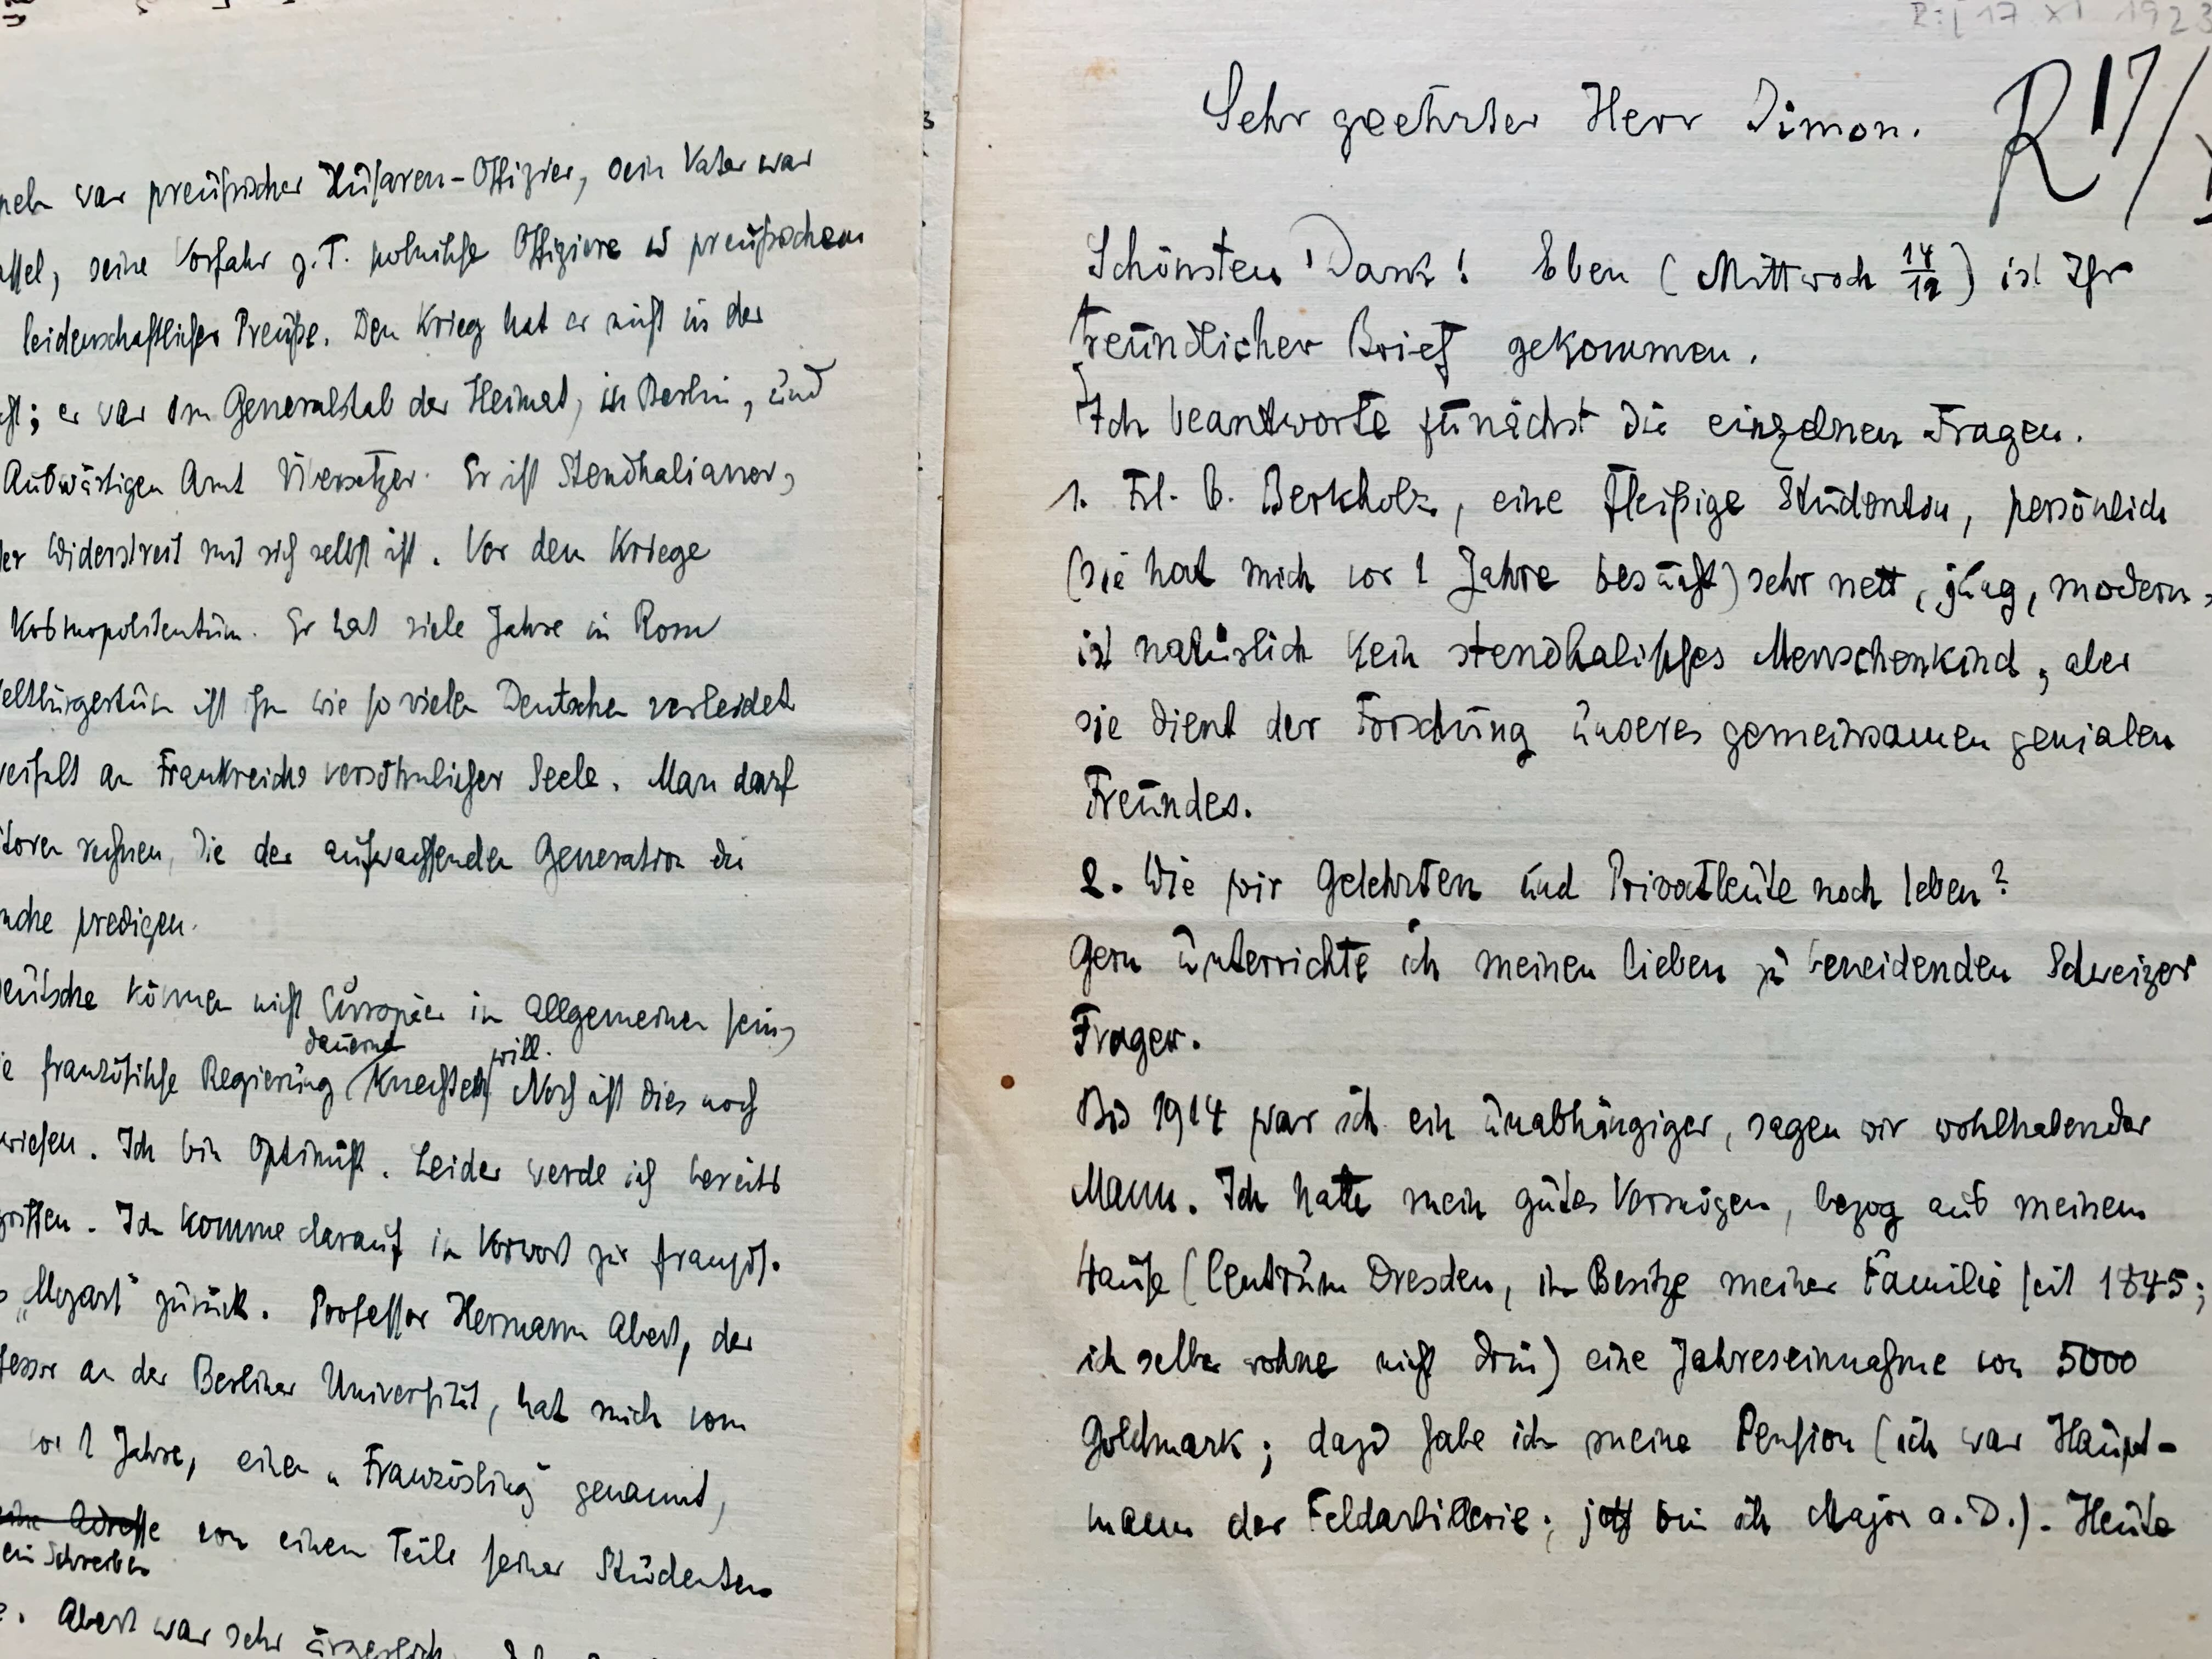 neh war preußischer Husaren-Offizier, sein Vater war
assel, seine Vorfahr z.T. polnische Offiziere preußischem
leidenschaftlicher Preuße. Den Krieg hat er nicht in der
cht; er war im Generalstab der Heimat, in Berlin, und
Auswärtigen Amt Übersetzer. Er ist Stendhalianer,
der Widerstreit mit sich selbst ist. Vor dem Kriege
Kosmopolitentum. Er hat viele Jahre in Rom
eltbürgertum ist ihm wie so vielen Deutschen verleidet
weifelt an Frankreichs versöhnlicher Seele. Man darf
toren rechnen, die der aufwachsenden Generation die
ache predigen.
eutsche können nicht Europäer im allgemeinen sein,
dauernd will.
e französische Regierung knechten Noch ist dies noch
wiesen. Ich bin Optimist. Leider werde ich bereits
griffen. Ich komme darauf im Vorwort zur französ.
s „Mozart" zurück. Professor Hermann Abert, der
fessor an der Berliner Universität, hat mich vom
vor 1 Jahre, einen „Französling" genannt,
Adresse von einem Teile seiner Studenten
ein Schreiben
e. Abert war sehr ärgerlich.
R: 17 XI 1923
R 17/
Sehr geehrter Herr Simon.
Schönsten Dank! Eben (Mittwoch 14/12) ist Ihr
freundlicher Brief gekommen.
Ich beantworte zunächst die einzelnen Fragen.
1. Frl. B. Berkholz, eine fleißige Studentin, persönlich
(sie hat mich vor 1 Jahre besucht) sehr nett, jung, modern,
ist natürlich kein stendhalisches Menschenkind, aber
sie dient der Forschung unseres gemeinsamen genialen
Freundes.
2. Wie wir Gelehrten und Privatleute noch leben?
Gern unterrichte ich meinen lieben zu beneidenden Schweizer
Frager.
Bis 1914 war ich ein unabhängiger, sagen wir wohlhabender
Mann. Ich hatte mein gutes Vermögen, bezog aus meinem
Hause (Centrum Dresden, im Besitze meiner Familie seit 1845;
ich selber wohne nicht drin) eine Jahreseinnahme von 5000
Goldmark; dazu habe ich meine Pension (ich war Haupt-
mann der Feldartillerie; jetzt bin ich Major a.D.). Heute